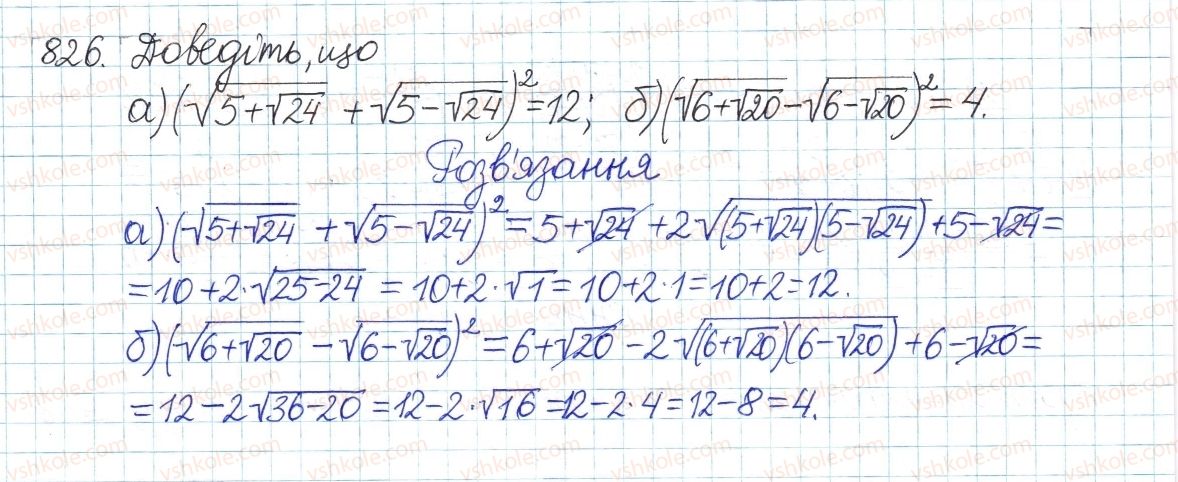 826. Доведіть, що
а) (√(5+√24) + √(5-√24))² = 12; б) (√(6+√20) - √(6-√20))² = 4.
Розв'язання
а) (√(5+√24) + √(5-√24))² = 5+√24 + 2√((5+√24)(5-√24)) + 5-√24 =
= 10+2·√(25-24) = 10+2·√1 = 10+2·1 = 10+2 = 12.
б) (√(6+√20) - √(6-√20))² = 6+√20 - 2√((6+√20)(6-√20)) + 6-√20 =
= 12-2√(36-20) = 12-2·√16 = 12-2·4 = 12-8 = 4.
vshkole.com